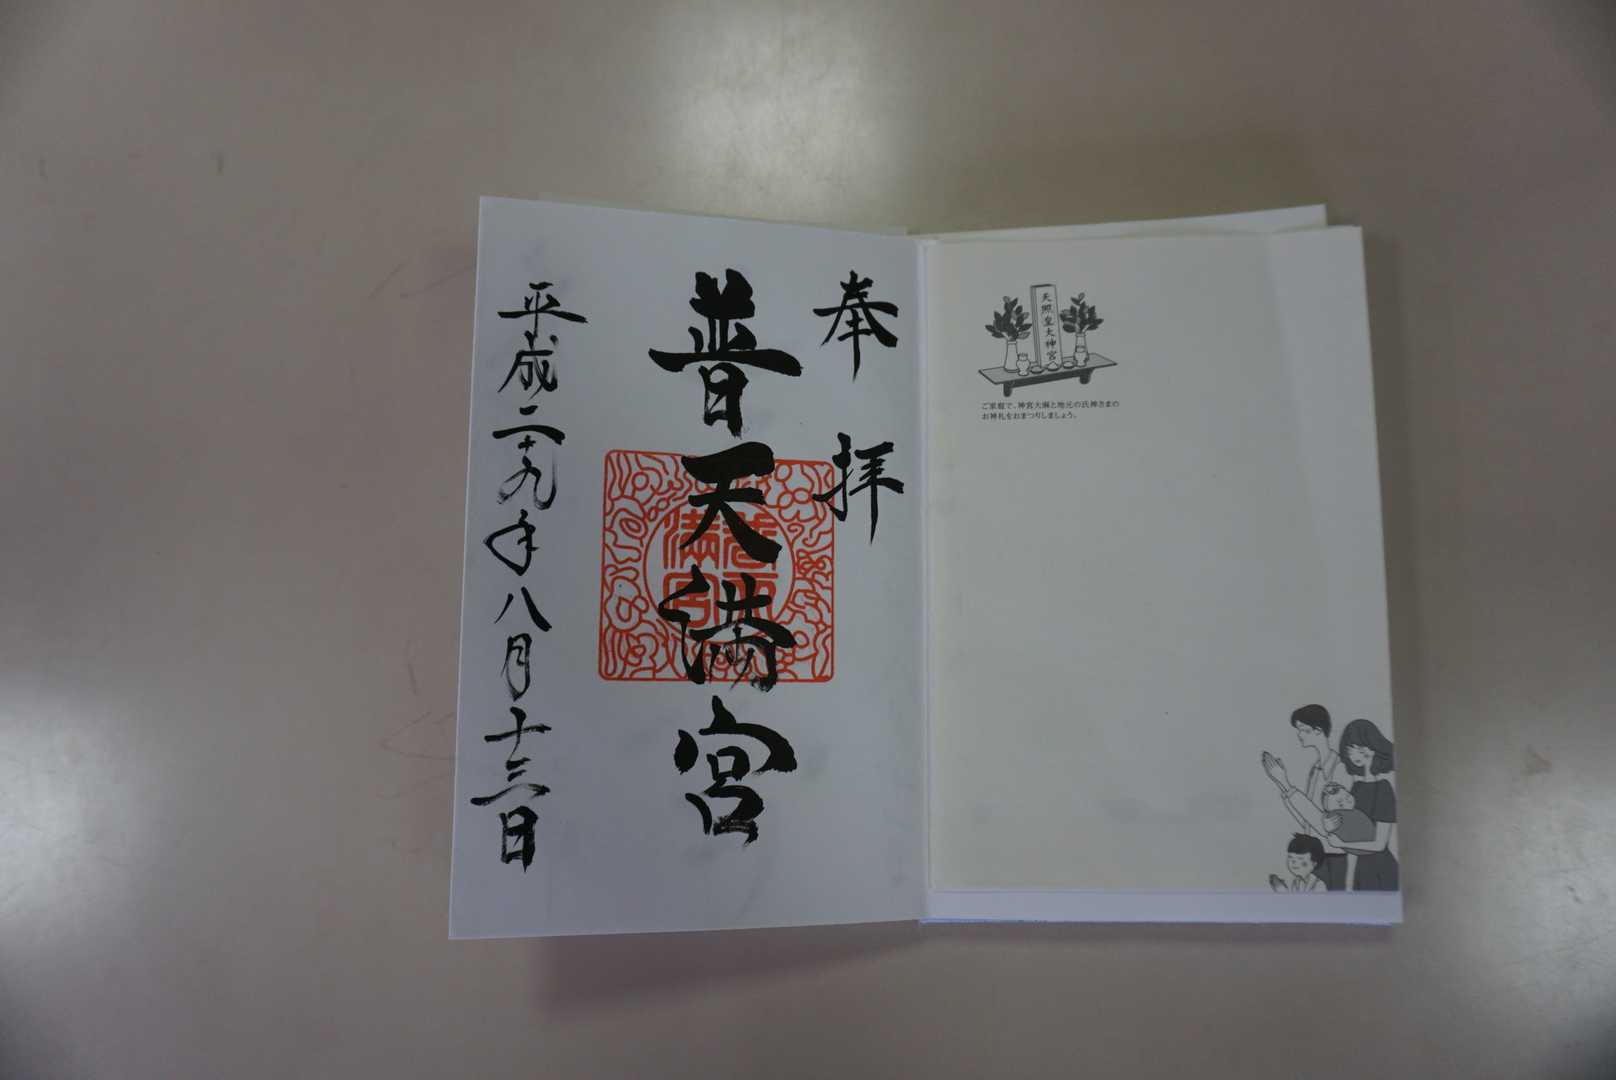 天照皇大神宮
ご家庭で、神宮大麻と地元の氏神さまの
お神札をおまつりしましょう。
奉拝
普天満宮
平成二十九年八月十三日